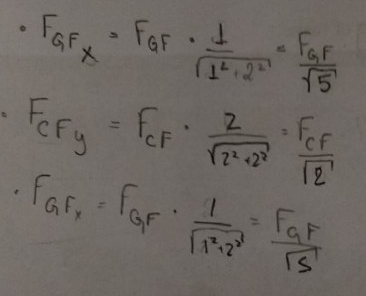 • F_GFx = F_GF · 1/√(1²+2²) = F_GF/√5
• F_CFy = F_CF · 2/√(2²+2²) = F_CF/√2
• F_GFx = F_GF · 1/√(1²+2²) = F_GF/√5